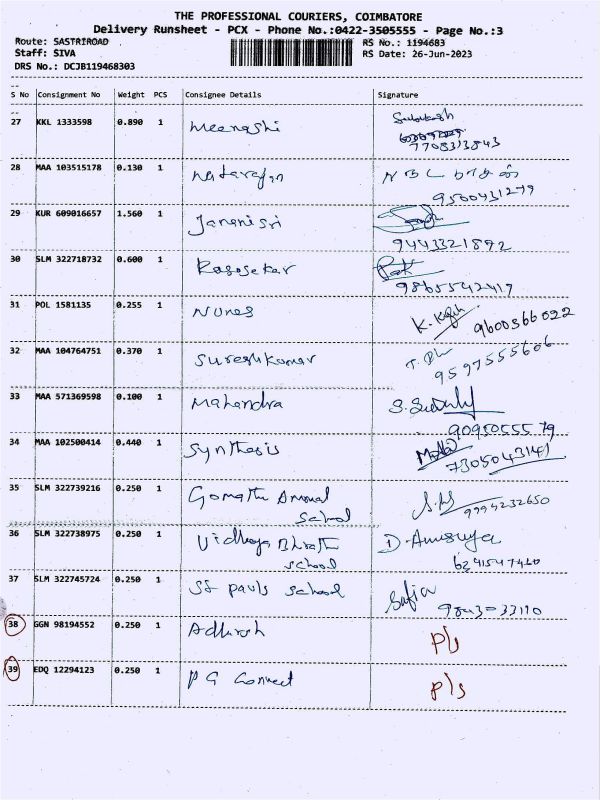 THE PROFESSIONAL COURIERS, COIMBATORE
Delivery Runsheet - PCX - Phone No.:0422-3505555 - Page No.:3
Route: SASTRIROAD RS No.: 1194683
Staff: SIVA RS Date: 26-Jun-2023
DRS No.: DCJB119468303
S No Consignment No Weight PCS Consignee Details Signature
27 KKL 1333598 0.890 1 Meenashi
7708313843
28 MAA 103515178 0.130 1 Natarajan நடராசன்
9500431279
29 KUR 609016657 1.560 1 Jananisri
9443321892
30 SLM 322718732 0.600 1 Rasasekar
9865542417
31 POL 1581135 0.255 1 Nunes 9600366022
32 MAA 104764751 0.370 1 Sureshkumar
9597555606
33 MAA 571369598 0.100 1 Mahendra
9095055579
34 MAA 102500414 0.440 1 Synthesis
7305043141
35 SLM 322739216 0.250 1 Gomathi Ammal
School 9994232650
36 SLM 322738975 0.250 1 Vidhaya Bharath D. Anusuya
School
37 SLM 322745724 0.250 1 St pauls School Safia
38 GGN 98194552 0.250 1 Adhiresh P/s
39 EDQ 12294123 0.250 1 PG Connect P/s